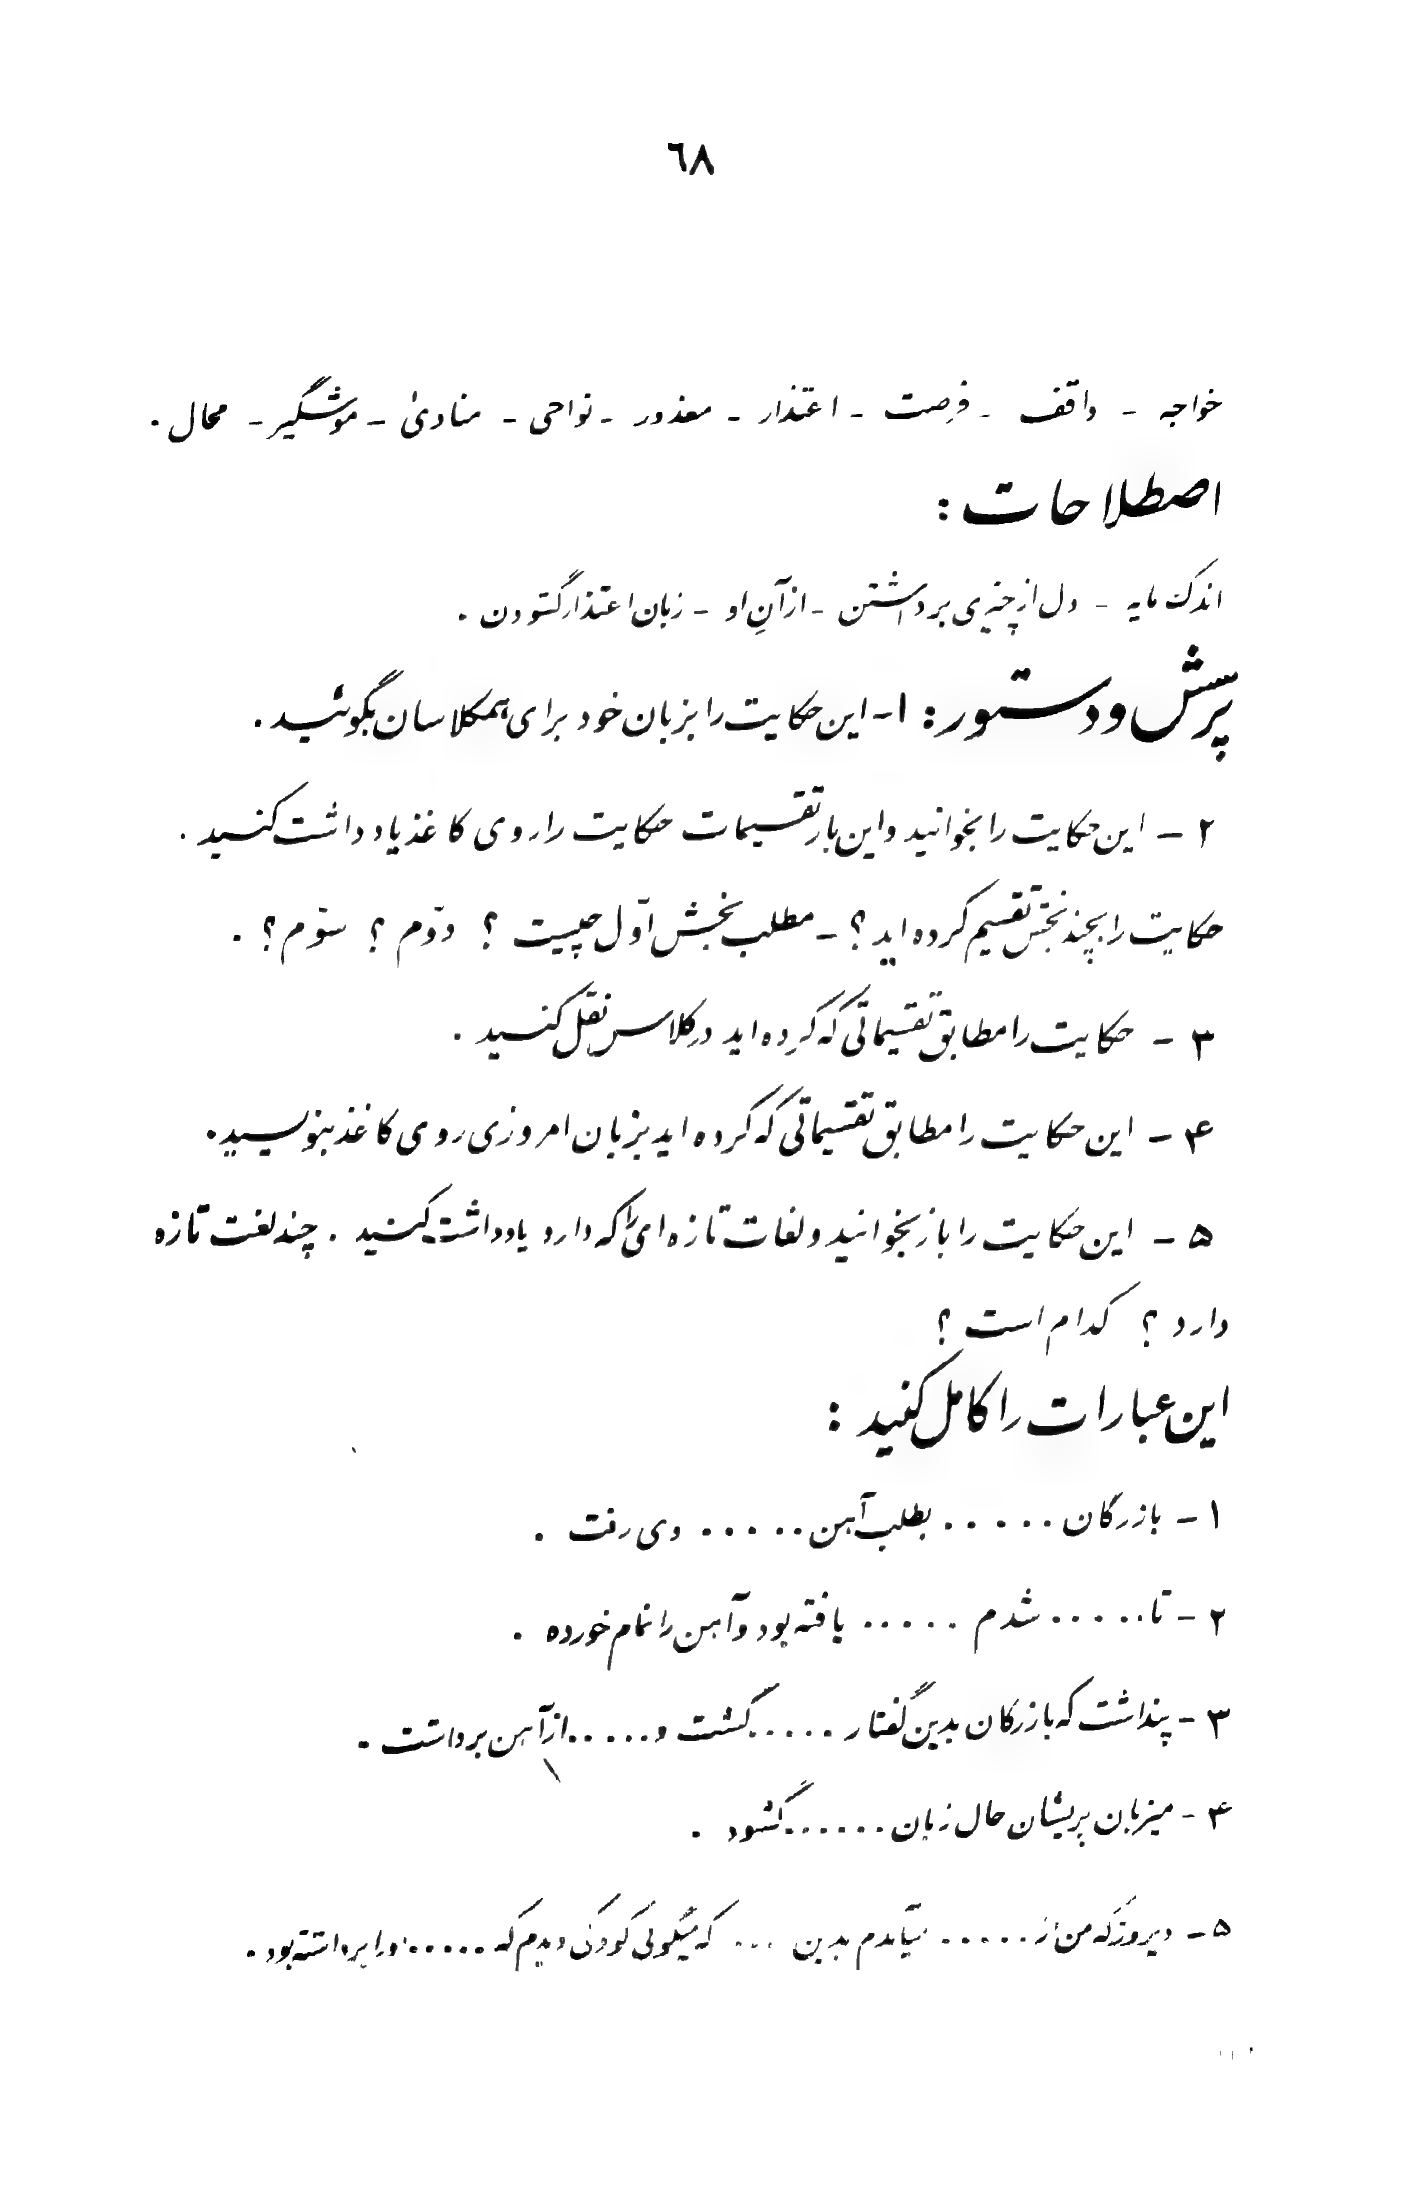 ٦٨
خواجه - واقف - فرصت - اعتذار - معذور - نواحی - منادیٰ - موشگیر - محال .
اصطلاحات :
اندک مایه - دل از چیزی برداشتن - از آنِ او - زبان اعتذار گشودن .
پرسش و دستور : ۱- این حکایت را بزبان خود برای همکلاسان بگوئید .
۲ - این حکایت را بخوانید و این بار تقسیمات حکایت را روی کاغذ یادداشت کنید .
حکایت را بچند بخش تقسیم کرده اید ؟ - مطلب بخش اوّل چیست ؟ دوّم ؟ سوّم ؟ .
۳ - حکایت را مطابق تقسیماتی که کرده اید در کلاس نقل کنید .
۴ - این حکایت را مطابق تقسیماتی که کرده اید بزبان امروزی روی کاغذ بنویسید .
۵ - این حکایت را باز بخوانید و لغات تازه ای را که دارد یادداشت کنید . چند لغت تازه
دارد ؟ کدام است ؟
این عبارات را کامل کنید :
۱ - بازرگان ..... بطلب آهن ..... وی رفت .
۲ - تا ..... شدم ..... یافته بود و آهن را تمام خورده .
۳ - پنداشت که بازرگان بدین گفتار ..... گشت و ..... از آهن برداشت .
۴ - میزبان پریشان حال زبان ...... گشود .
۵ - دیروز که من از ..... میآمدم بدین ... که میگوئی کودکی دیدم که ..... او را برداشته بود .